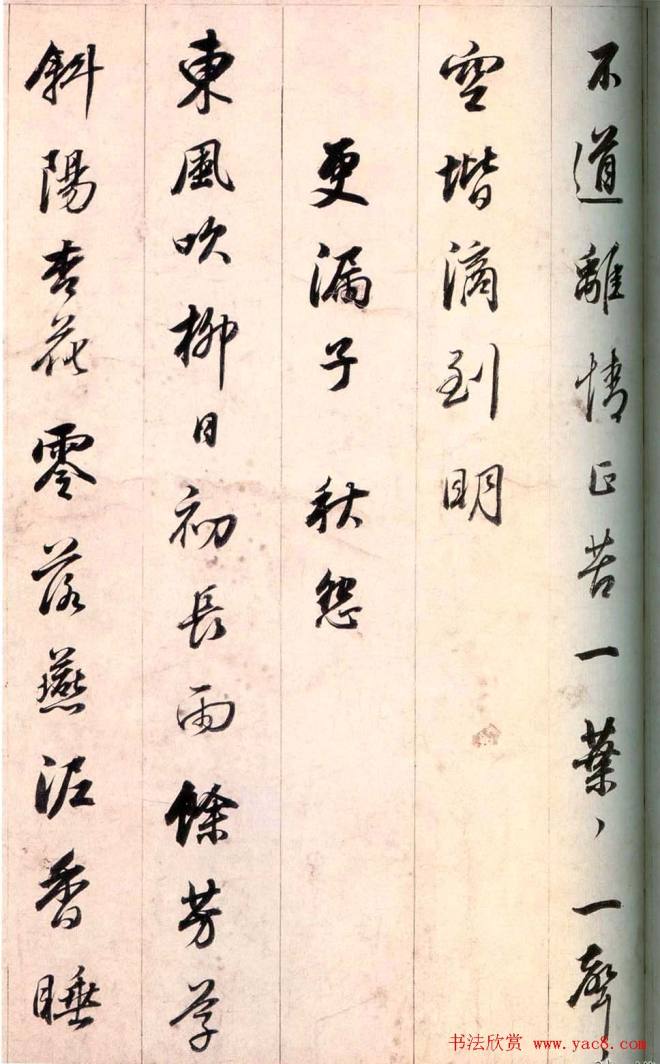 不道離情正苦一葉葉一聲
空堦滴到明
更漏子 秋怨
東風吹柳日初長雨餘芳草
斜陽杏花零落燕泥香睡
书法欣赏 www.yac8.com